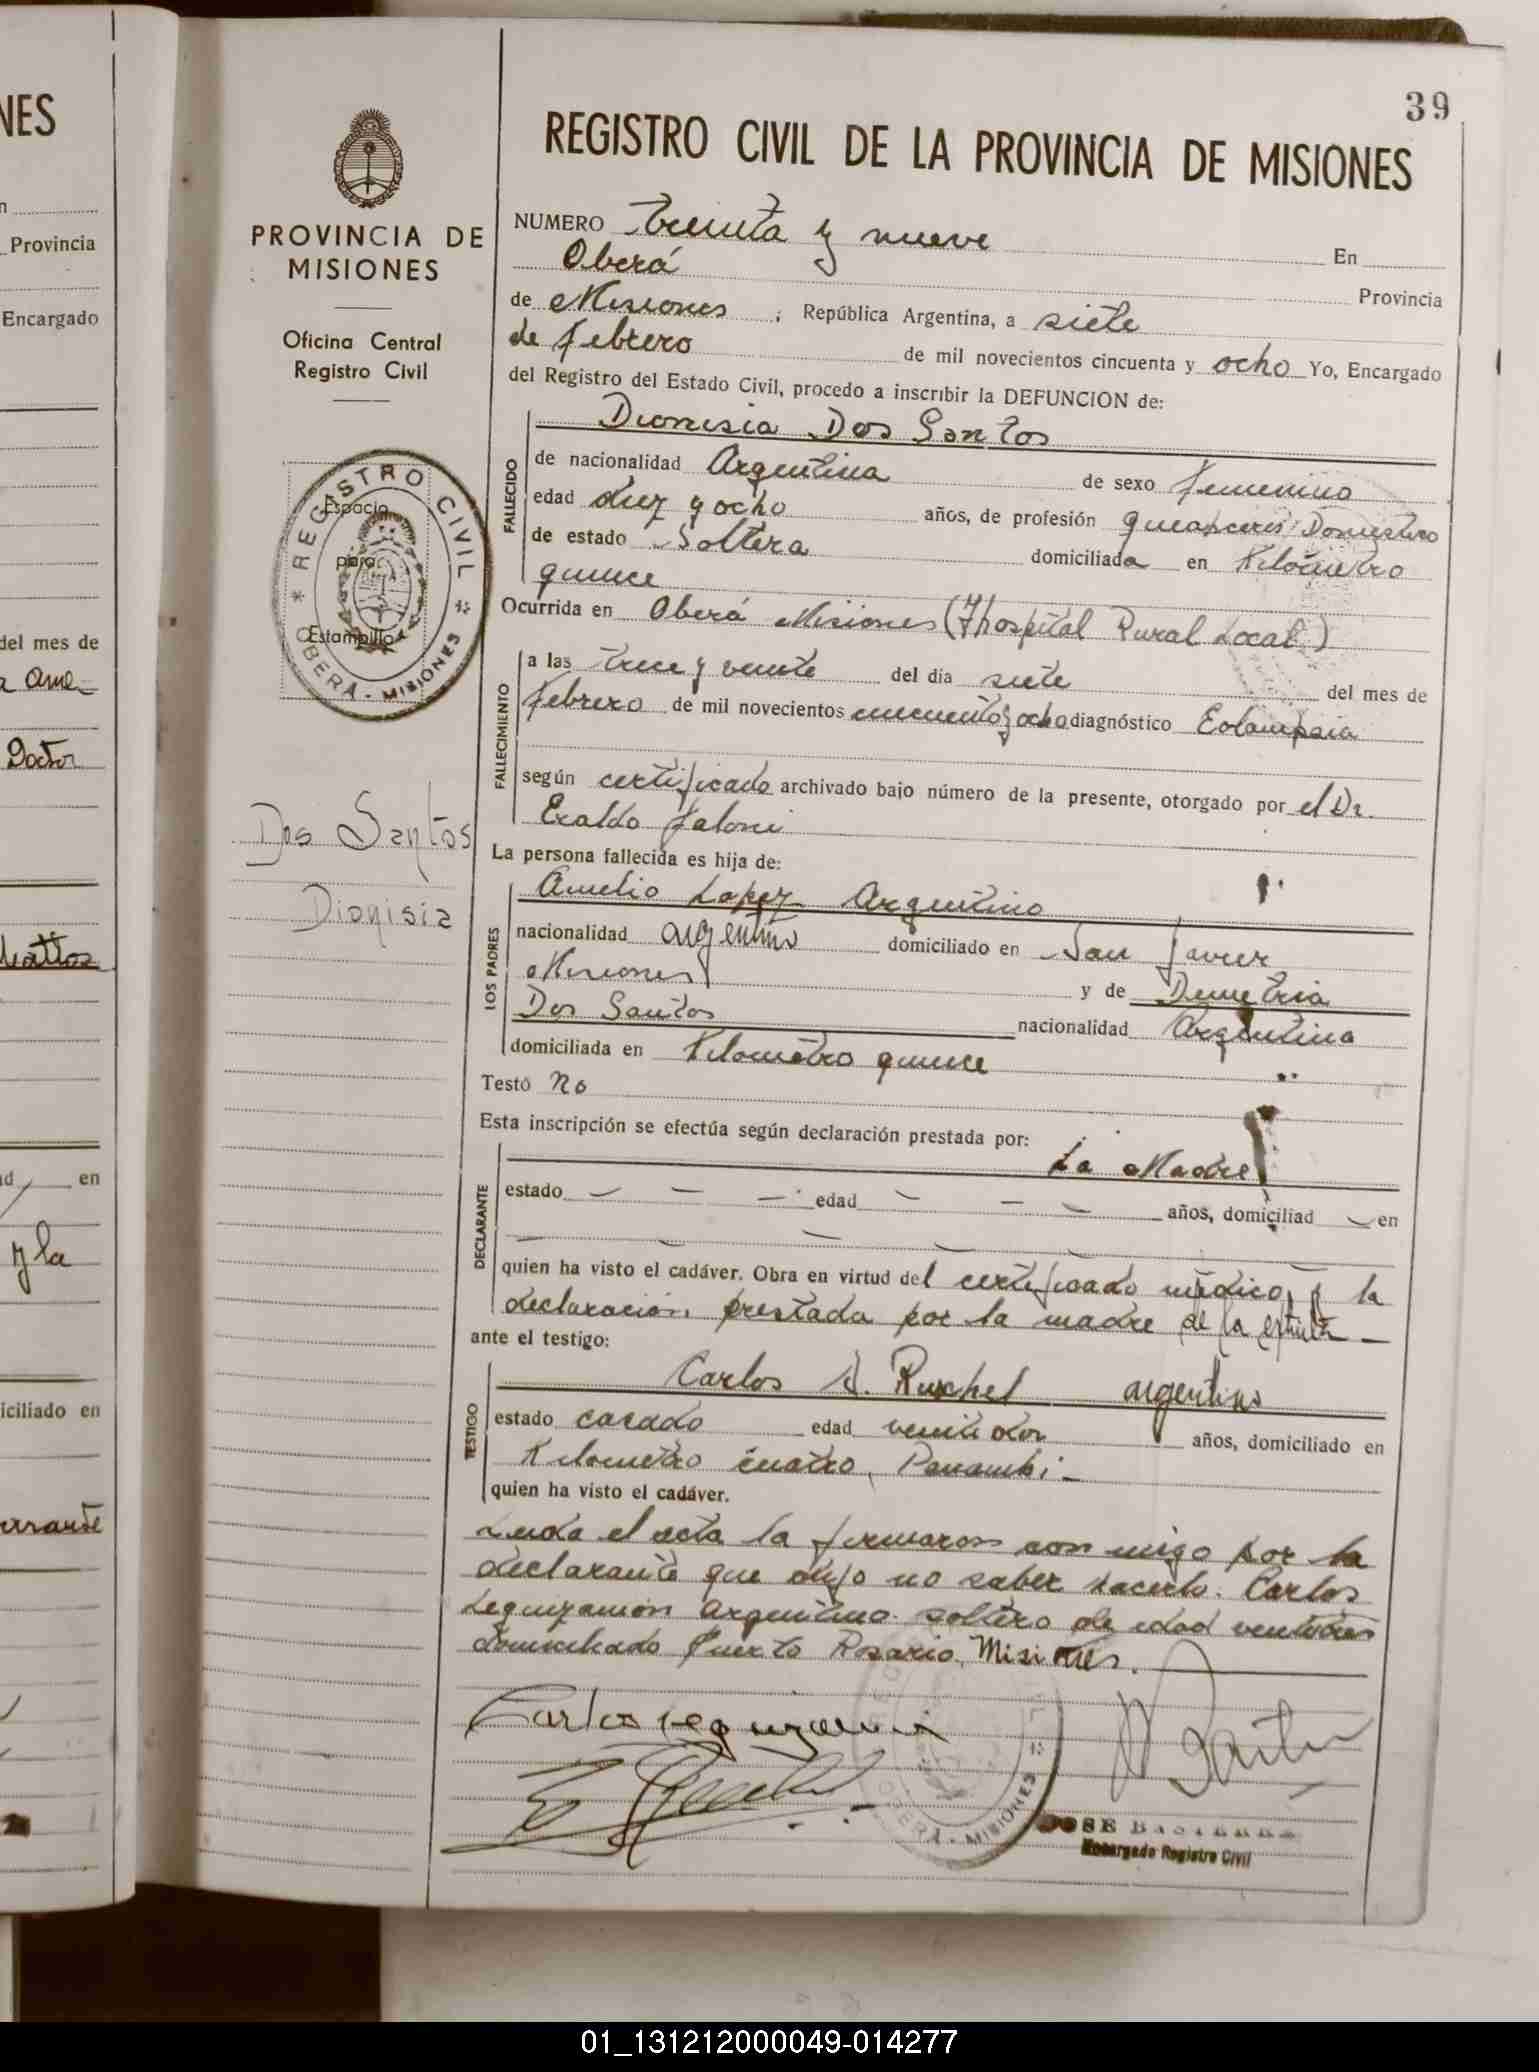 NES
n
Provincia
Encargado
del mes de
Doctor
en
y la
iciliado en
PROVINCIA DE
MISIONES
Oficina Central
Registro Civil
* REGISTRO CIVIL *
OBERÁ - MISIONES
Espacio
para
Estampilla
Dos Santos
Dionisia
39
REGISTRO CIVIL DE LA PROVINCIA DE MISIONES
NUMERO treinta y nueve En
Oberá Provincia
de Misiones ; República Argentina, a siete
de febrero de mil novecientos cincuenta y ocho Yo, Encargado
del Registro del Estado Civil, procedo a inscribir la DEFUNCION de:
FALLECIDO
Dionisia Dos Santos
de nacionalidad Argentina de sexo femenino
edad diez y ocho años, de profesión
de estado Soltera domiciliada en Kilómetro
quince
Ocurrida en Oberá Misiones (Hospital Rural Local)
FALLECIMIENTO
a las trece y veinte del día siete del mes de
febrero de mil novecientos cincuenta y ocho diagnóstico Eclampsia
según certificado archivado bajo número de la presente, otorgado por el Dr.
Eraldo
La persona fallecida es hija de:
LOS PADRES
Amelio Lopez Argentino
nacionalidad argentino domiciliado en San Javier
Misiones y de Demetria
Dos Santos nacionalidad Argentina
domiciliada en Kilometro quince
Testó no
Esta inscripción se efectúa según declaración prestada por:
DECLARANTE
La Madre
estado — — — edad — — — años, domiciliad — en
— — — — —
quien ha visto el cadáver. Obra en virtud del certificado médico, y la
declaración prestada por la madre de la extinta —
ante el testigo:
TESTIGO
Carlos A. Ruschel argentino
estado casado edad años, domiciliado en
Kilometro cuatro, Panambi -
quien ha visto el cadáver.
Leida el acta la firmaron con migo por la
declarante que dijo no saber hacerlo. Carlos
Leguizamón Argentino soltero de edad
domiciliado Puerto Rosario, Misiones.
Carlos Leguizamon
OBERÁ - MISIONES
JOSE
Encargado Registro Civil
01_131212000049-014277